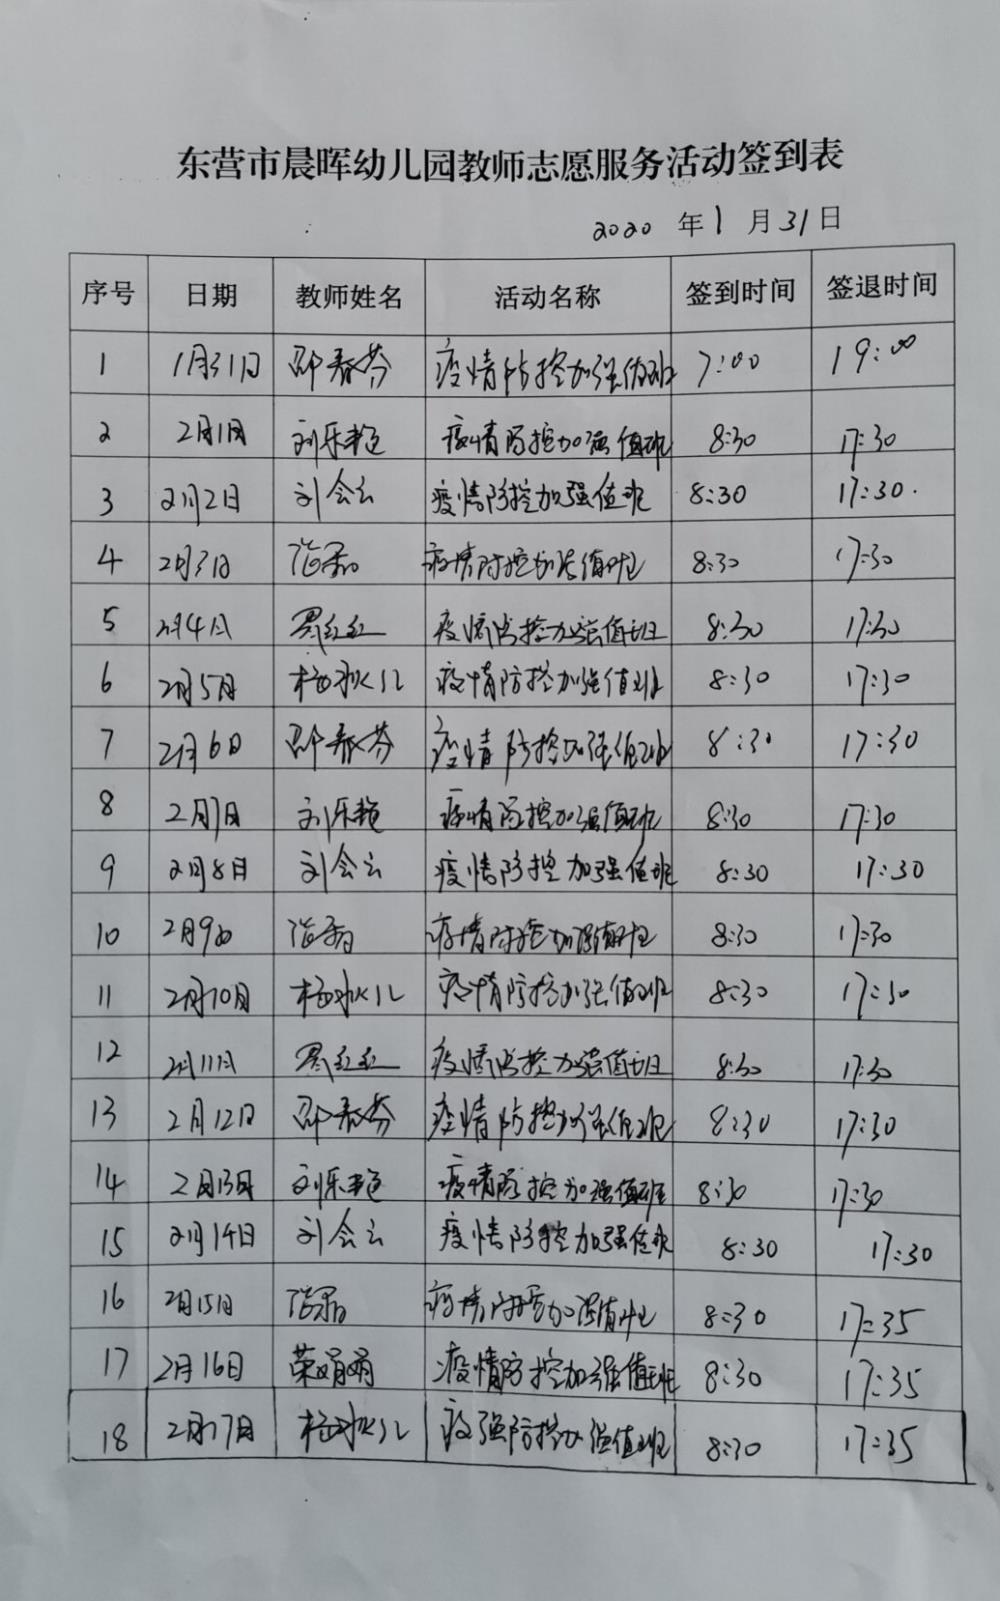 东营市晨晖幼儿园教师志愿服务活动签到表
2020 年 1 月 31 日
序号 日期 教师姓名 活动名称 签到时间 签退时间
1 1月31日 邵春芬 疫情防控加强值班 7:00 19:00
2 2月1日 刘乐艳 疫情防控加强值班 8:30 17:30
3 2月2日 刘会云 疫情防控加强值班 8:30 17:30.
4 2月3日 疫情防控加强值班 8:30 17:30
5 2月4日 疫情防控加强值班 8:30 17:30
6 2月5日 杨秋儿 疫情防控加强值班 8:30 17:30
7 2月6日 邵春芬 疫情防控加强值班 8:30 17:30
8 2月7日 刘乐艳 疫情防控加强值班 8:30 17:30
9 2月8日 刘会云 疫情防控加强值班 8:30 17:30
10 2月9日 疫情防控加强值班 8:30 17:30
11 2月10日 杨秋儿 疫情防控加强值班 8:30 17:30
12 2月11日 疫情防控加强值班 8:30 17:30
13 2月12日 邵春芬 疫情防控加强值班 8:30 17:30
14 2月13日 刘乐艳 疫情防控加强值班 8:30 17:30
15 2月14日 刘会云 疫情防控加强值班 8:30 17:30
16 2月15日 疫情防控加强值班 8:30 17:35
17 2月16日 荣娟娟 疫情防控加强值班 8:30 17:35
18 2月17日 杨秋儿 疫强防控加强值班 8:30 17:35